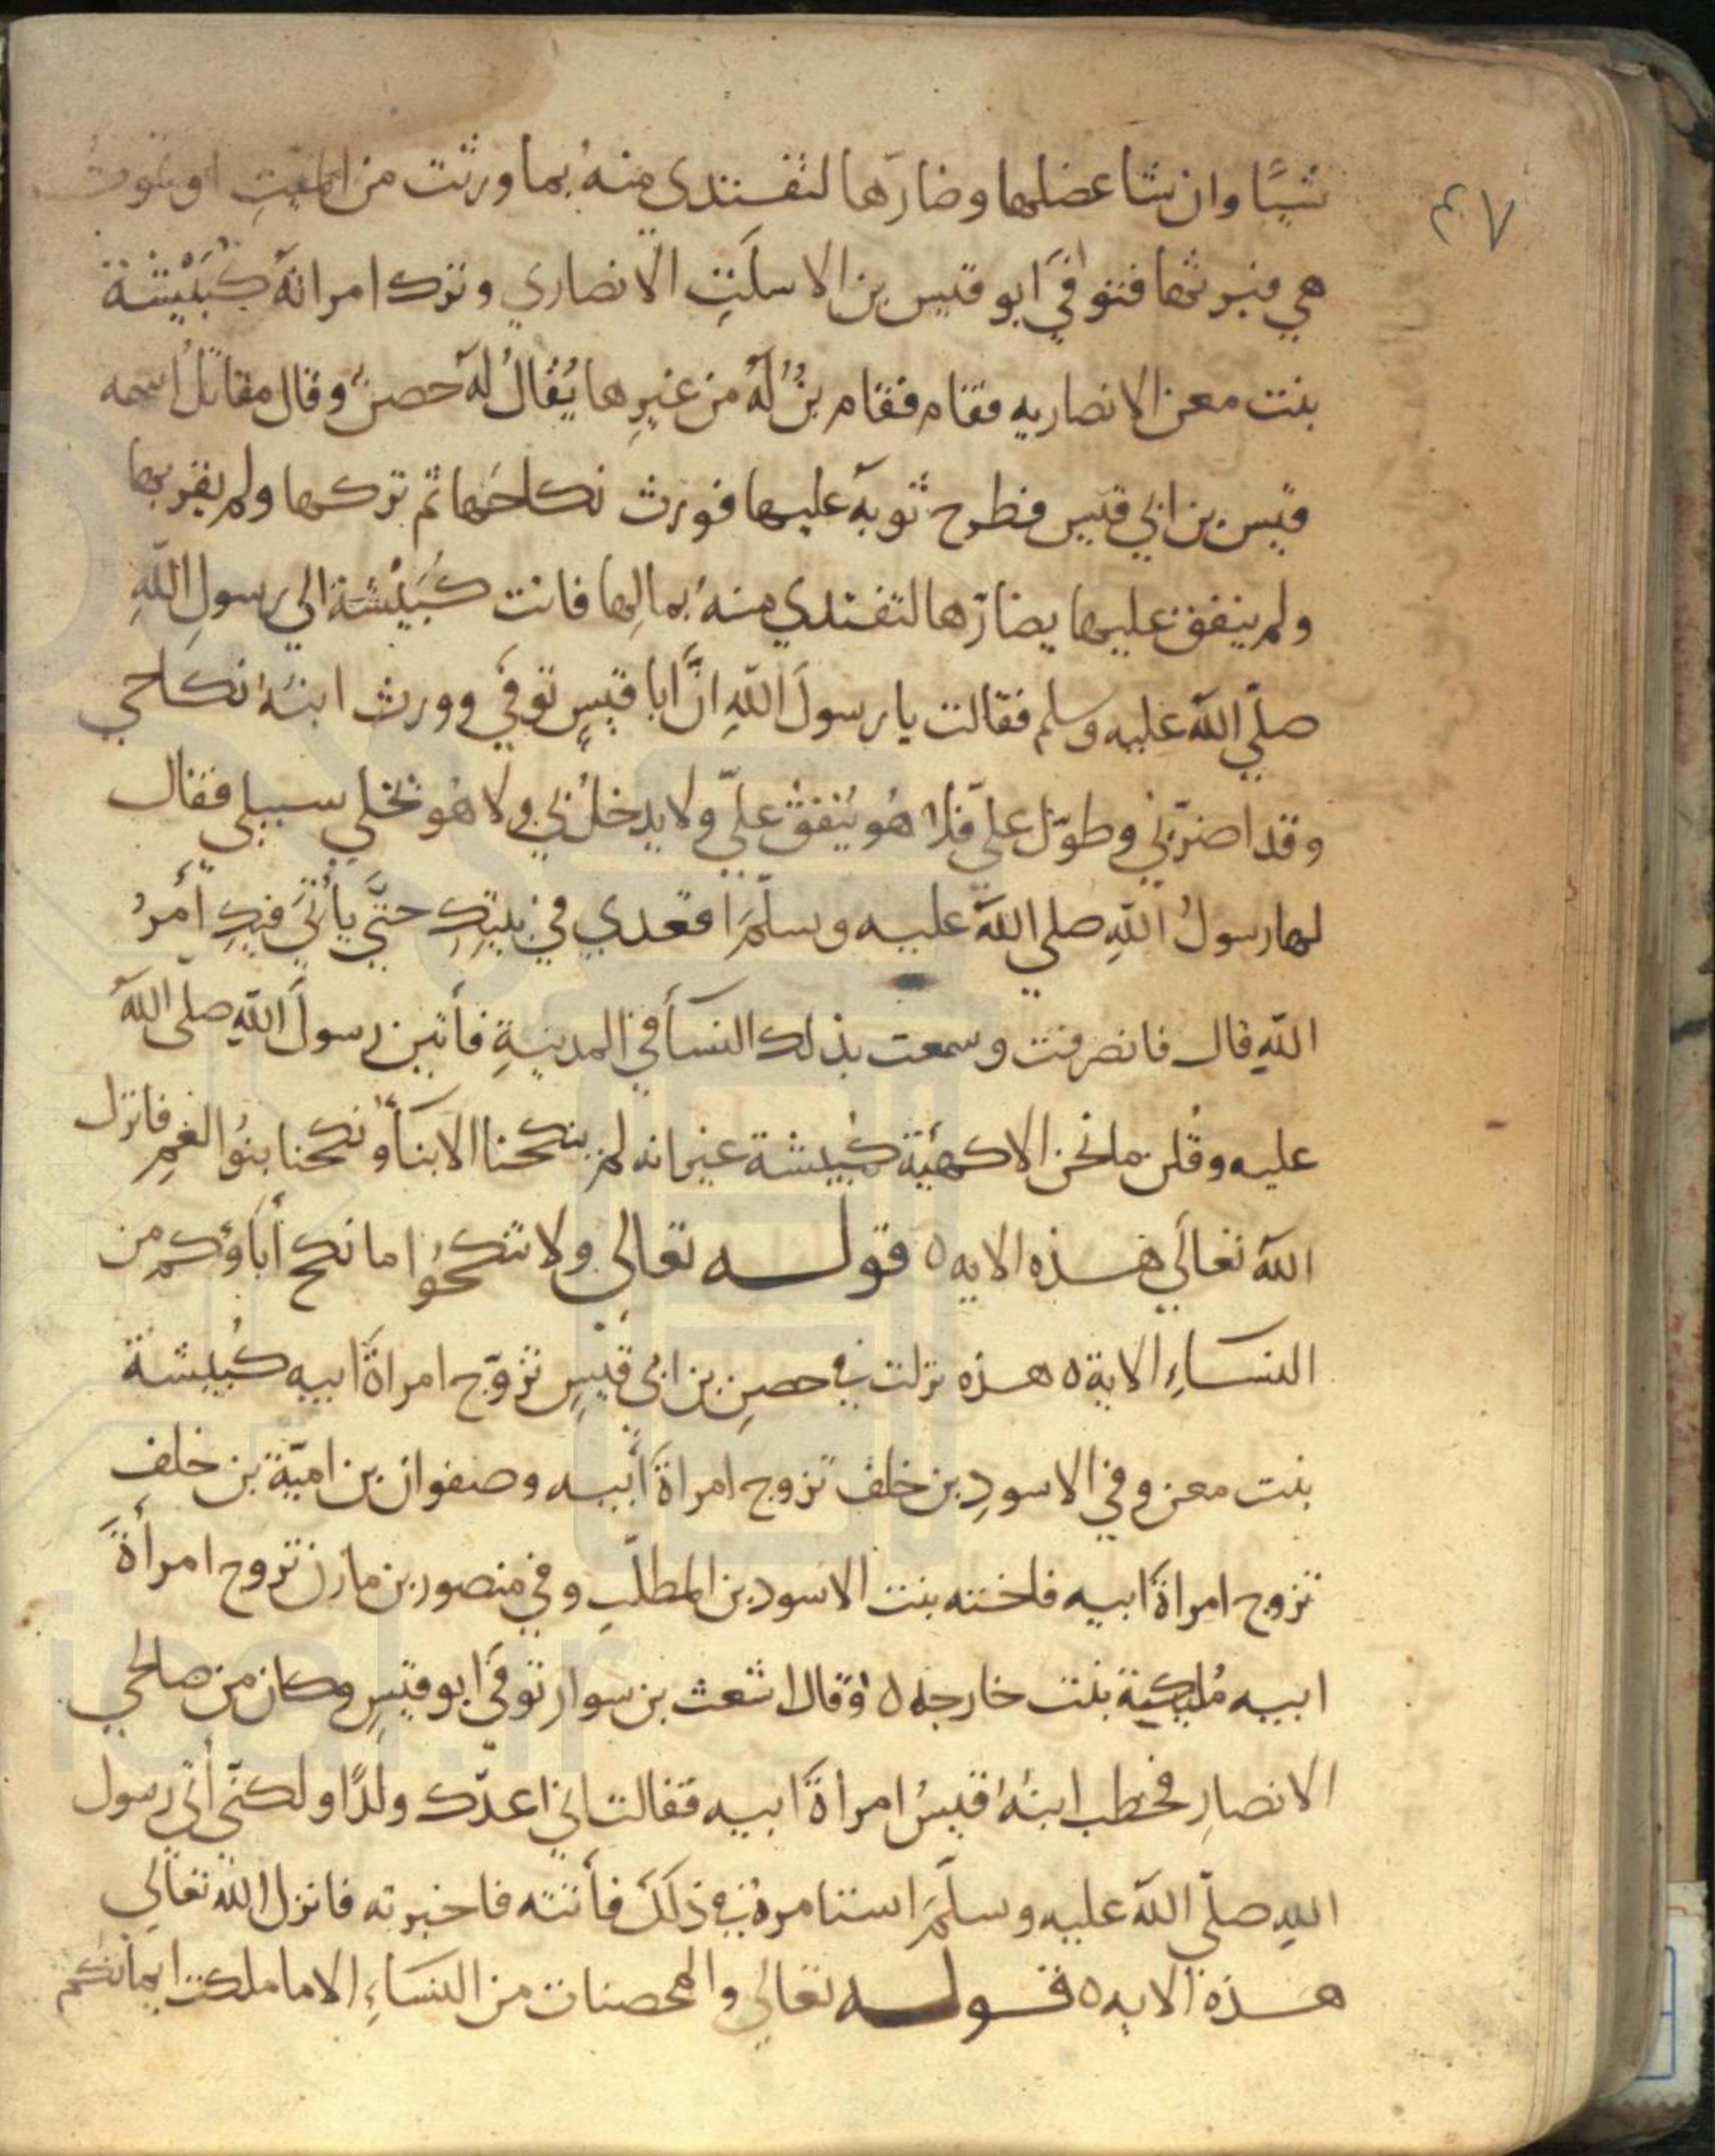 ٤٧
شيًا وان شا عضلها وضارّها لتفتدى منهُ بما ورثت من الميتِ او تموت
هي فيرثها فتوفيَ ابو قيس بن الاسلَتِ الانصاري وترك امراتهُ كُبَيْشة
بنت معن الانصاريه فقام فقام بنٌ لهُ من غيرِها يُقالُ لهُ حصنٌ وقال مقاتلُ اسمه
قيس بن ابي قيس فطرح ثوبهُ عليها فورث نكاحَها ثم تركها ولم يقربها
ولم ينفق عليها يضارّها لتفتدي منهُ بمالِها فاتت كُبَيْشة الي رسولِ اللهِ
صلّي اللهُ عليه وسلم فقالت يا رسولَ اللهِ انَّ ابا قيسٍ توفيَ وورث ابنهُ نكاحي
وقد اضرّني وطوّل عليّ فلا هُو يُنفقُ عليّ ولا يدخلُ بي ولا هُو يخلي سبيلي فقال
لها رسولُ اللهِ صلي اللهُ عليه وسلّمَ اقعدي في بيتِكِ حتَّي يأتيَ فيكِ أمرُ
اللهِ قال فانصرفت وسمعت بذلك النسأ في المدينةِ فأتين رسولَ اللهِ صلي اللهُ
عليه وقُلن ما نحن الا كهيئة كُبيشة غير انه لم ينكحنا الابنأ ونكحنا بنُوا العَمِ فانزل
اللهُ تعالَي هذه الايه ه قوله تعالي ولا تنكحُوا ما نكح أباؤكم من
النساءِ الاية ه هذه نزلت في حصنِ بن ابي قيسِ تزوّج امراةَ ابيه كُبيشة
بنت معن وفي الاسودِ بن خلف تزوج امراةَ أبيه وصفوان بن اميّة بن خلفِ
تزوج امراةَ ابيه فاخته بنت الاسود بن المطلّبِ وفي منصور بن مازن تزوج امرأةَ
ابيه مُليكة بنت خارجه ه وقال اشعث بن سوار توفيَ ابو قيسِ وكان من صالحي
الانصارِ فخطب ابنُهُ قيسُ امراةَ ابيه فقالت اني اعدّك ولدًا ولكنّي أتي رسول
اللهِ صلّي اللهُ عليه وسلّمَ استامرهُ في ذلكَ فأتته فاخبرته فانزل اللهُ تعالَي
هذه الايه ه قوله تعالي والمحصنات من النساءِ الا ما ملكت ايمانكم